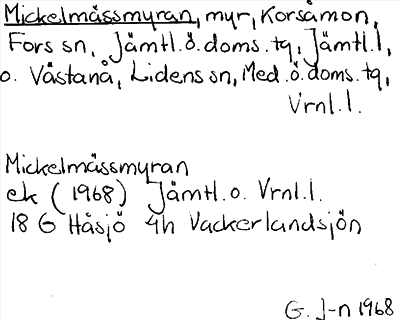 Mickelmässmyran, myr, Korsåmon,
Fors sn, Jämtl.ö.doms.tg, Jämtl.l,
o. Västanå, Lidens sn, Med.ö.doms.tg,
Vrnl.l.
Mickelmässmyran
ek (1968) Jämtl.o. Vrnl.l.
18 G Håsjö 4h Vackerlandsjön
G. J-n 1968